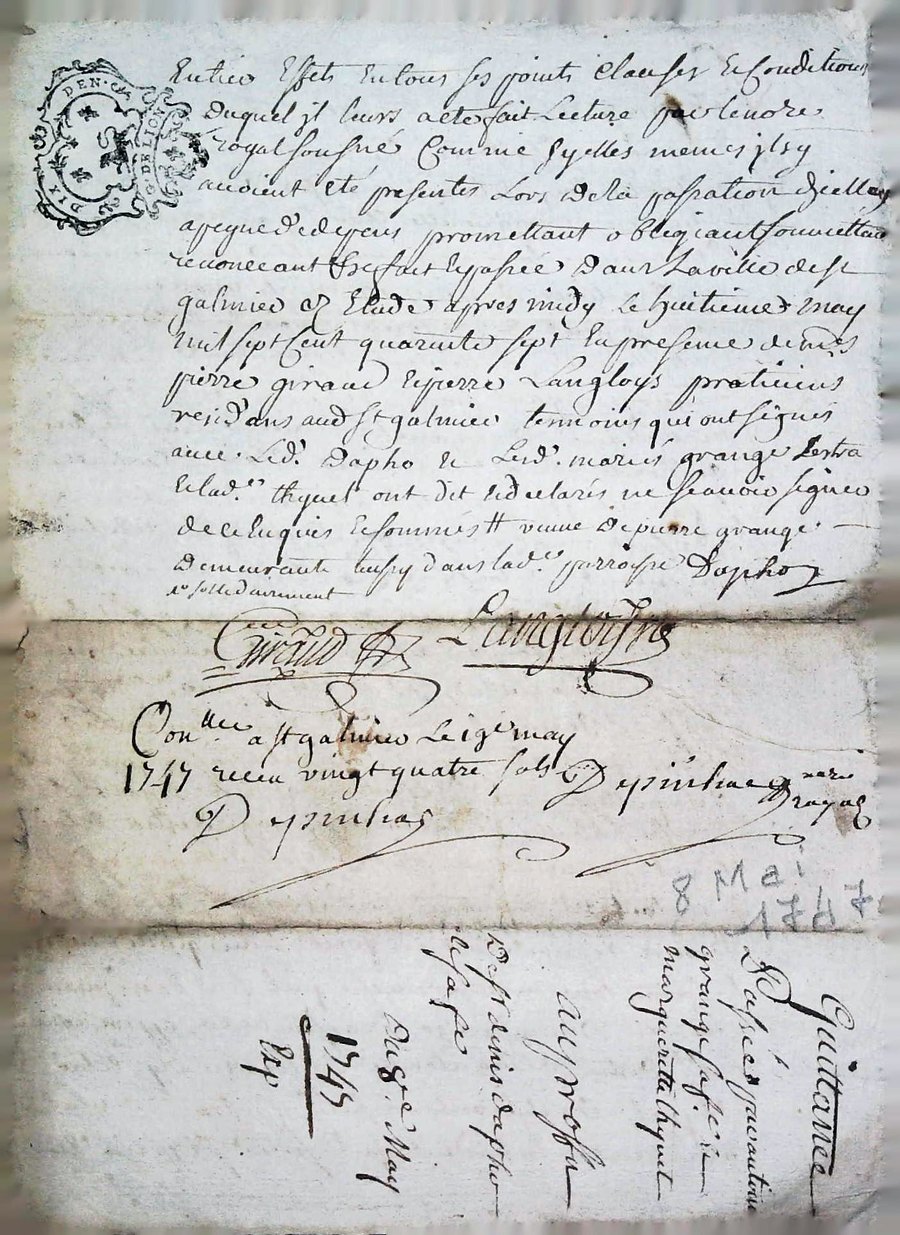 DIX DEN.
G. DE LION
Entier Effets En tous ses points clauses Et Conditions
Duquel jl leurs a eté fait Lecture par le no.re
royal sousné Comme sy elles memes jl sy
avoient eté presentes Lors de la passation d'jcelluy
a peyne d'edepens promettant obligeant soumettant
renonceant &c fait Et passée Dans La ville de st
galmier Etude apres midy Le huitieme may
mil sept Cent quarante sept En presence de m.es
pierre giraud Et pierre Langloys praticiens
resid'ans aud st galmier temoins qui ont signés
avec Led. Dapho Et Lesd. mariés grange
Et lad. thyuel ont dit Et declarés ne scavoir signer
de ce Enquis Et sommés # veuve de pierre grange
Demeurante aussy dans lad. parroisse Dapho
Giraud Langlois
Con.llé a st galmier Le 19e may
1747 receu vingt quatre sols Depinhac
Depinhac
no.re royal
8 Mai
1747
Quittance
Passée par
grange
marguerite thyuel
au proffit
De st denis dapho
Du 8e May
1747
Exp